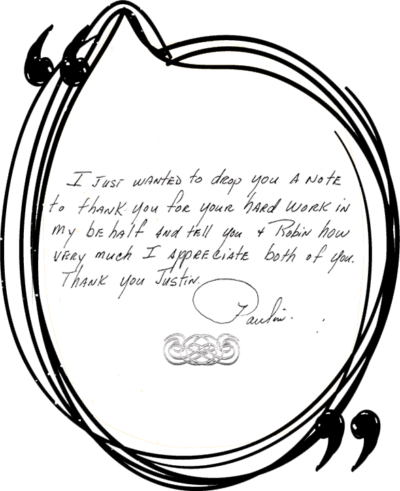 I JUST WANTED to drop you A NOTE
to thank you for your hard work in
my behalf and tell you & Robin how
very much I appreciate both of you.
Thank you Justin.